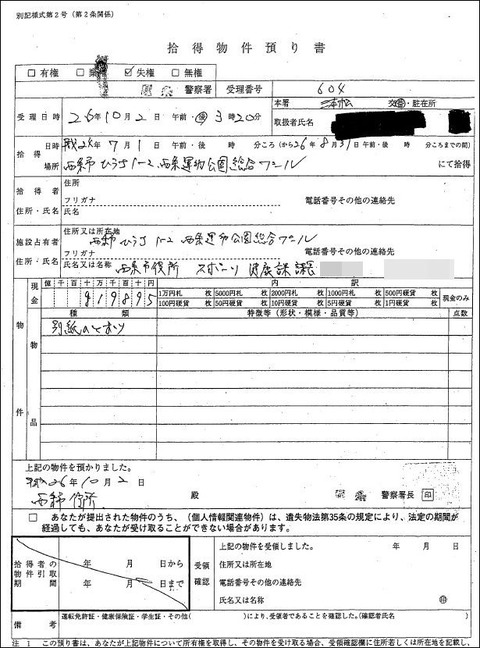 別記様式第2号(第2条関係)
拾得物件預り書
□有権 □棄権 ☑失権 □無権
警察署 受理番号 604
受理日時 26年10月2日 午前・後 3時20分
本署 交番・駐在所
取扱者氏名
拾得 日時 26年7月1日 午前・後 時 分ころ(から26年8月31日午前・後 時 分ころまでの間)
場所 西条市ひうち1-2 西条運動公園総合プール にて拾得
拾得者 住所・氏名
住所
フリガナ
氏名
電話番号その他の連絡先
施設占有者 住所・氏名
住所又は所在地 西条市ひうち1-2 西条運動公園総合プール
フリガナ
氏名又は名称 西条市役所 スポーツ健康課
電話番号その他の連絡先
現金 億 千 百 十 万 千 百 十 円
819895
内訳
1万円札 枚 5000円札 枚 2000円札 枚 1000円札 枚 500円硬貨 枚
100円硬貨 枚 50円硬貨 枚 10円硬貨 枚 5円硬貨 枚 1円硬貨 枚
現金のみ
物件 物品
種類 特徴等(形状・模様・品質等) 点数
別紙のとおり
上記の物件を預かりました。
26年10月2日
西条市役所 殿 警察署長 印
□ あなたが提出された物件のうち、(個人情報関連物件)は、遺失物法第35条の規定により、法定の期間が
経過しても、あなたが受け取ることができない場合があります。
拾得者の物件引取期間
年 月 日から
年 月 日まで
受領確認
上記の物件を受領しました。 年 月 日
住所又は所在地
電話番号その他の連絡先
氏名又は名称 ㊞
備考 運転免許証・健康保険証・学生証・その他( )により、受領者であることを確認した。(確認者氏名 )
注 1 この預り書は、あなたが上記物件について所有権を取得し、その物件を受け取る場合、受領確認欄に住所若しくは所在地を記載し、